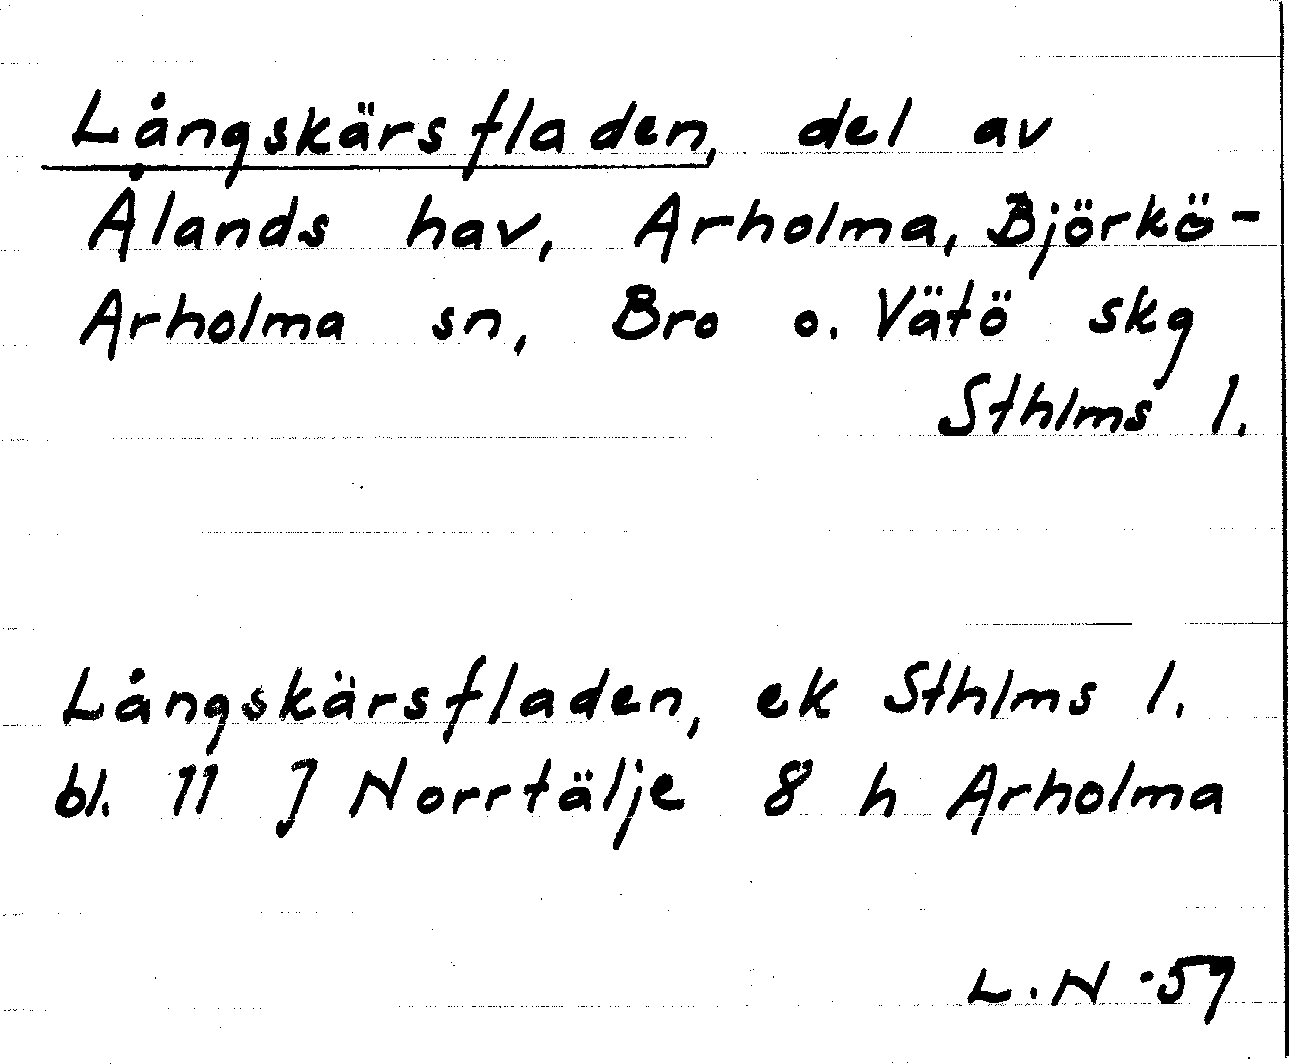 Långskärsfladen, del av
Ålands hav, Arholma, Björkö-
Arholma sn, Bro o. Vätö skg
Sthlms l.
Långskärsfladen, ek Sthlms l.
bl. 11 J Norrtälje 8 h Arholma
L. N ·57